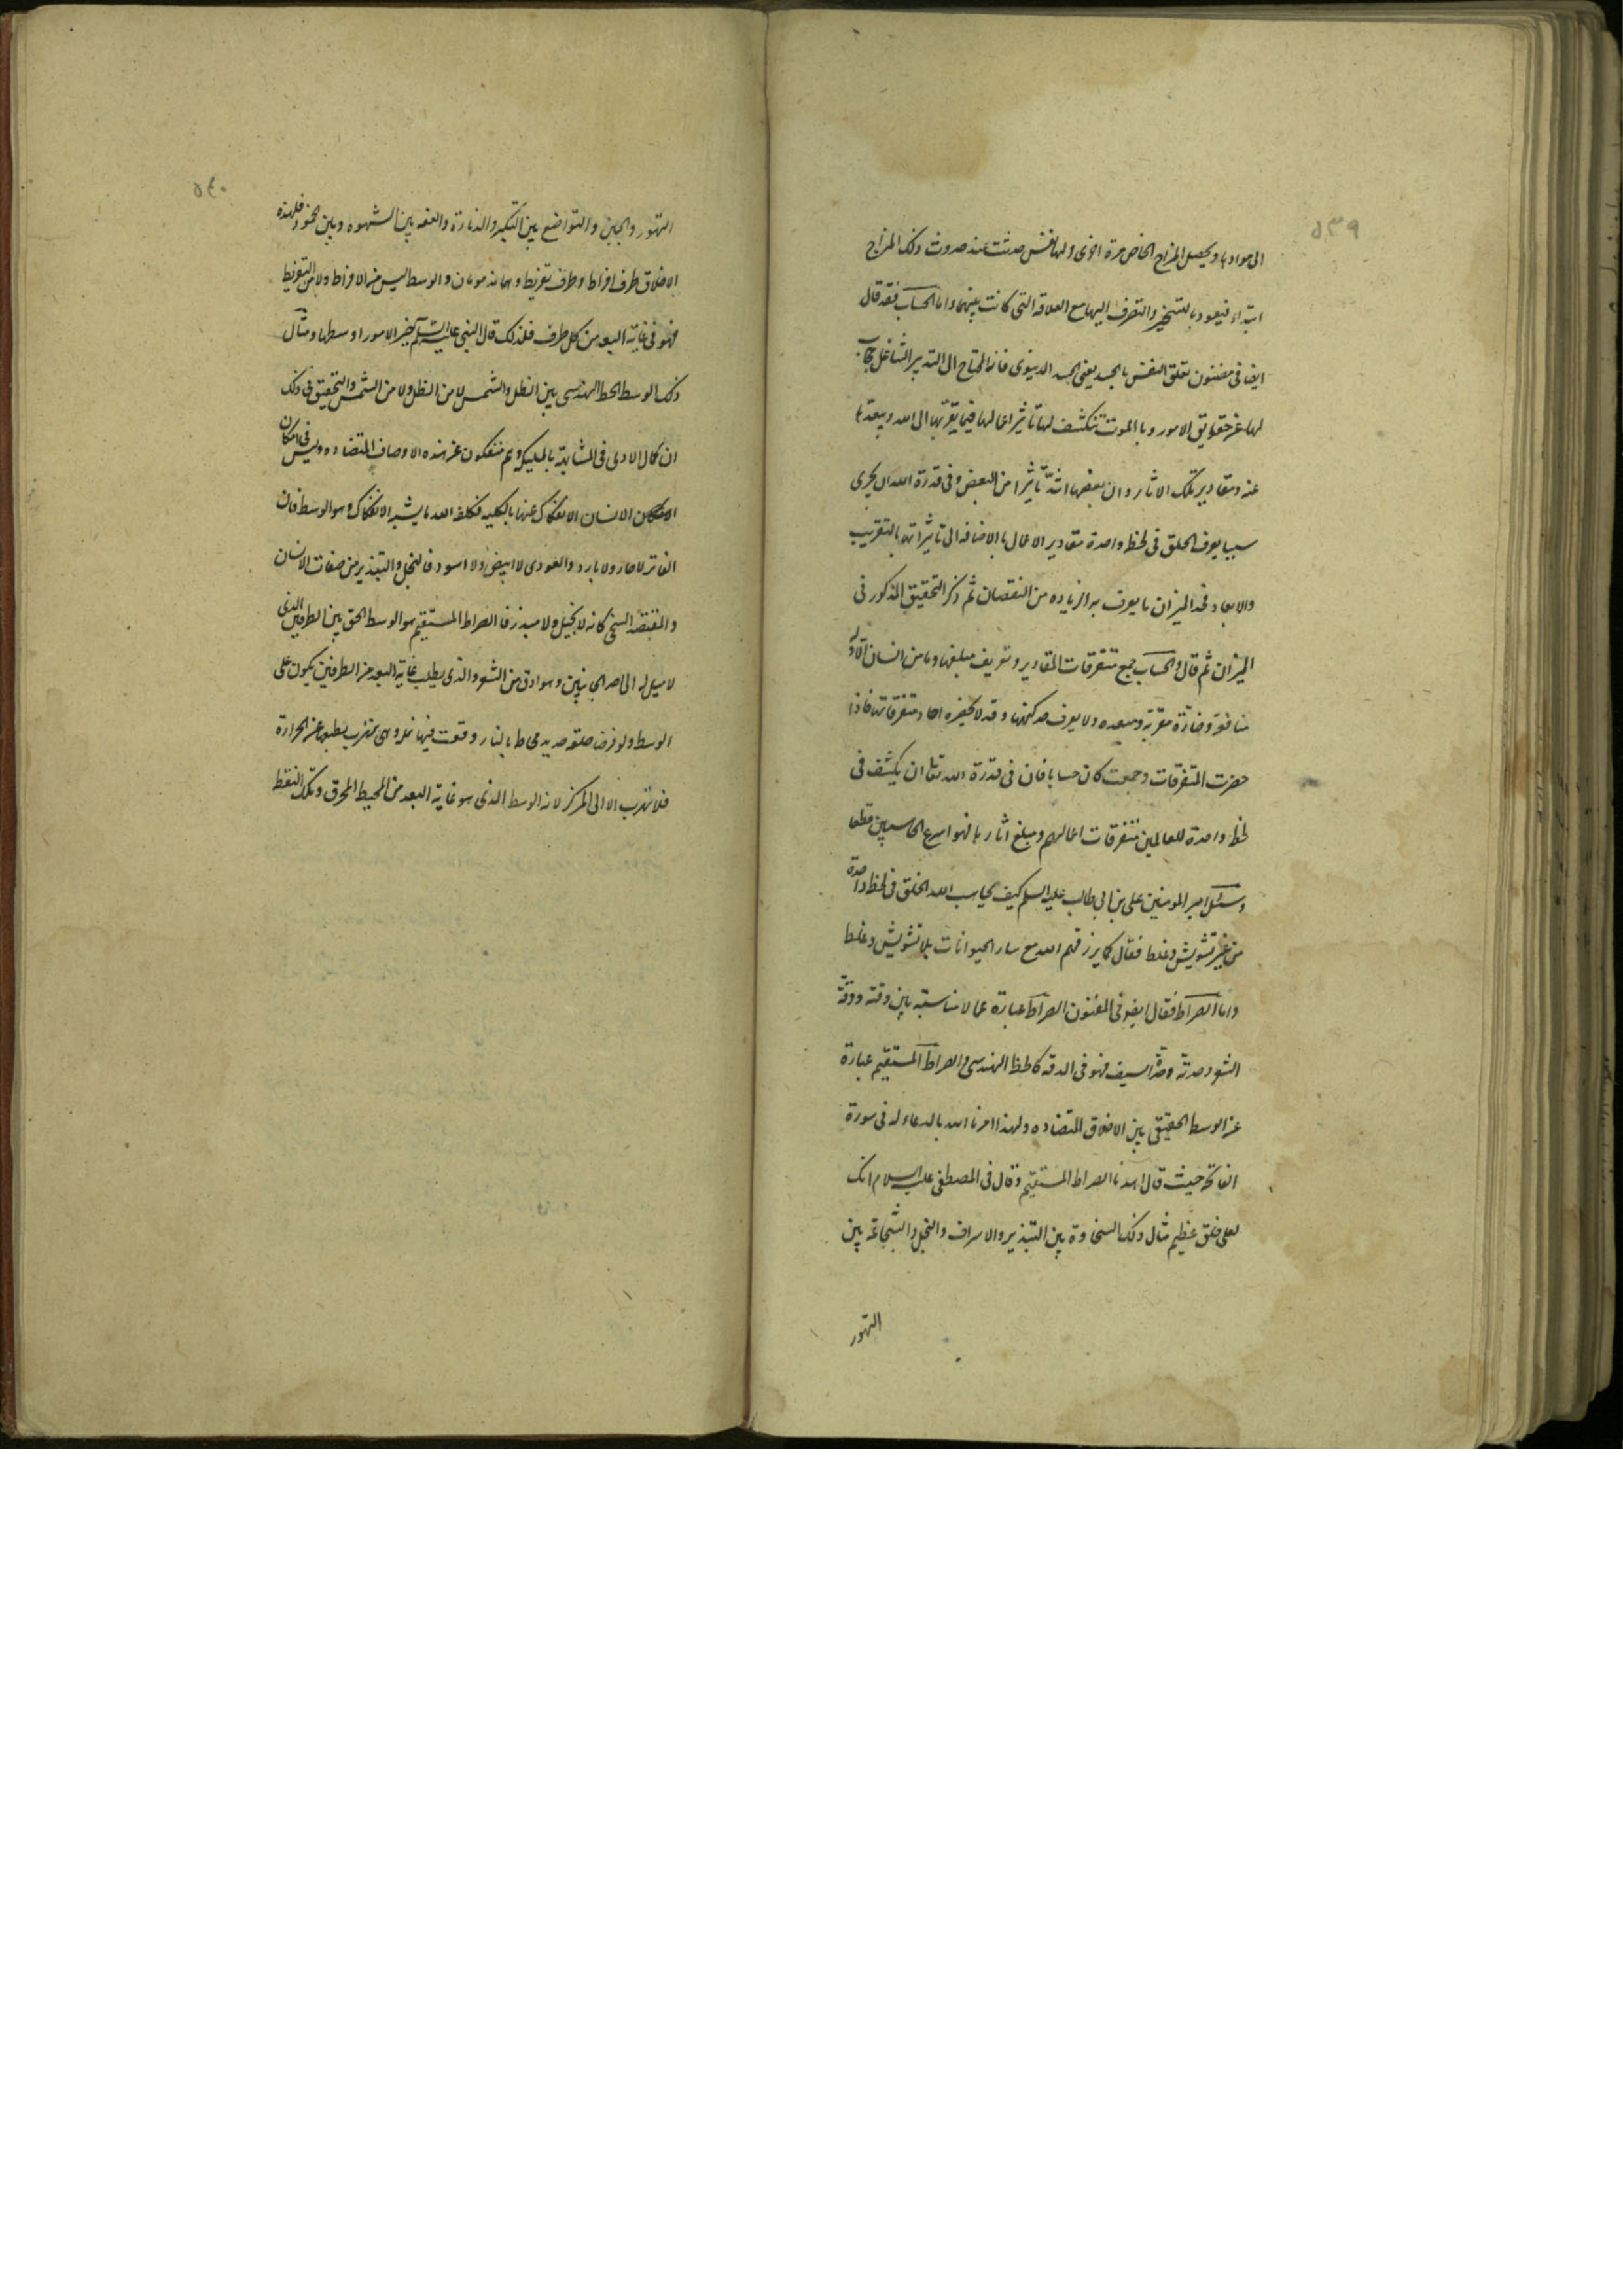 ٥٣٩
الى موادها ويحصل المزاج الخاص مرة اخرى ولها نفس حدثت عند حدوث ذلك المزاج
ابتداء فيعود بالتسخير والتصرف اليها مع العلاقه التى كانت بينهما واما الحساب فقد قال
ايضا فى مضنون تعلق النفس بالجسد يعنى الجسد الدنيوى فانه المحتاج الى التدبير الشاغل حجاب
لها عن حقايق الامور وبالموت تنكشف لها تاثير اعمالها فيما يقربها الى الله ويبعدها
عنه ومقادير تلك الاثار وان بعضها اشد تاثيرا من البعض وفى قدرة الله ان يجرى
سببا يعرف الخلق فى لحظه واحدة مقادير الاعمال بالاضافه الى تاثيراتها بالتقريب
والابعاد فحد الميزان ما يعرف به الزياده من النقصان ثم ذكر التحقيق المذكور فى
الميزان ثم قال والحساب جمع متفرقات المقادير وتعريف مبلغها وما من انسان الا وله
نافعة وضارة مقربة ومبعده ولا يعرف فذلكتها وقد لا يحضره احاد متفرقاتها فاذا
حضرت المتفرقات وجمعت كان حسابا فان فى قدرة الله تعالى ان يكشف فى
لحظه واحدة للعالمين متفرقات اعمالهم ومبلغ اثارها فهو اسرع الحاسبين قطعا
وسئل امير المومنين على بن ابى طالب عليه السلم كيف يحاسب الله الخلق فى لحظه واحدة
من غير تشويش وغلط فقال كما يرزقهم الله مع سار الحيوانات بلا تشويش وغلط
واما الصراط فقال ايضا فى المضنون الصراط عبارة عما لا مناسبة بين دقته ودقة
الشعر وحدته وحدة السيف فهو فى الدقه كالخط الهندسى والصراط المستقيم عبارة
عن الوسط الحقيقى بين الاخلاق المتضاده ولهذا امرنا الله بالدعاء له فى سورة
الفاتحه حيث قال اهدنا الصراط المستقيم وقال فى المصطفى عليه السلام انك
لعلى خلق عظيم مثال ذلك السخاوة بين التبذير والاسراف والبخل والشجاعة بين
التهور
٥٤٠
التهور والجبن والتواضع بين التكبر والدنارة والعفه بين الشهوه وبين الخمود فلهذه
الاخلاق طرف افراط وطرف تفريط وهما مذمومان والوسط ليس من الافراط ولا من التفريط
فهو فى غاية البعد من كل طرف فلذلك قال النبى عليه السلم خير الامور اوسطها ومثال
ذلك الوسط الخط الهندسى بين الظل والشمس لا من الظل ولا من الشمس والتحقيق فى ذلك
ان كمال الادمى فى المشابهة بالمليكة وهم منفكون عن هذه الاوصاف المتضاده وليس فى امكان
الانسان الانفكاك عنها بالكليه فكلفه الله ما يشبه الانفكاك وهو الوسط فان
الفاتر لا حار ولا بارد والعودى لا ابيض ولا اسود فالبخل والتبذير من صفات الانسان
والمقتصد السخى كانه لا بخيل ولا مبذر فالصراط المستقيم هو الوسط الحق بين الطرفين الذى
لا ميل له الى احد الجانبين وهو ادق من الشعر والذى يطلب غاية البعد من الطرفين يكون على
الوسط ولو فرض حلقه حديد محاط بالنار وقعت فيها نمله وهى تهرب بطبعها عن الحرارة
فلا تهرب الا الى المركز لانه الوسط الذى هو غاية البعد من المحيط المحرق وتلك النقطه